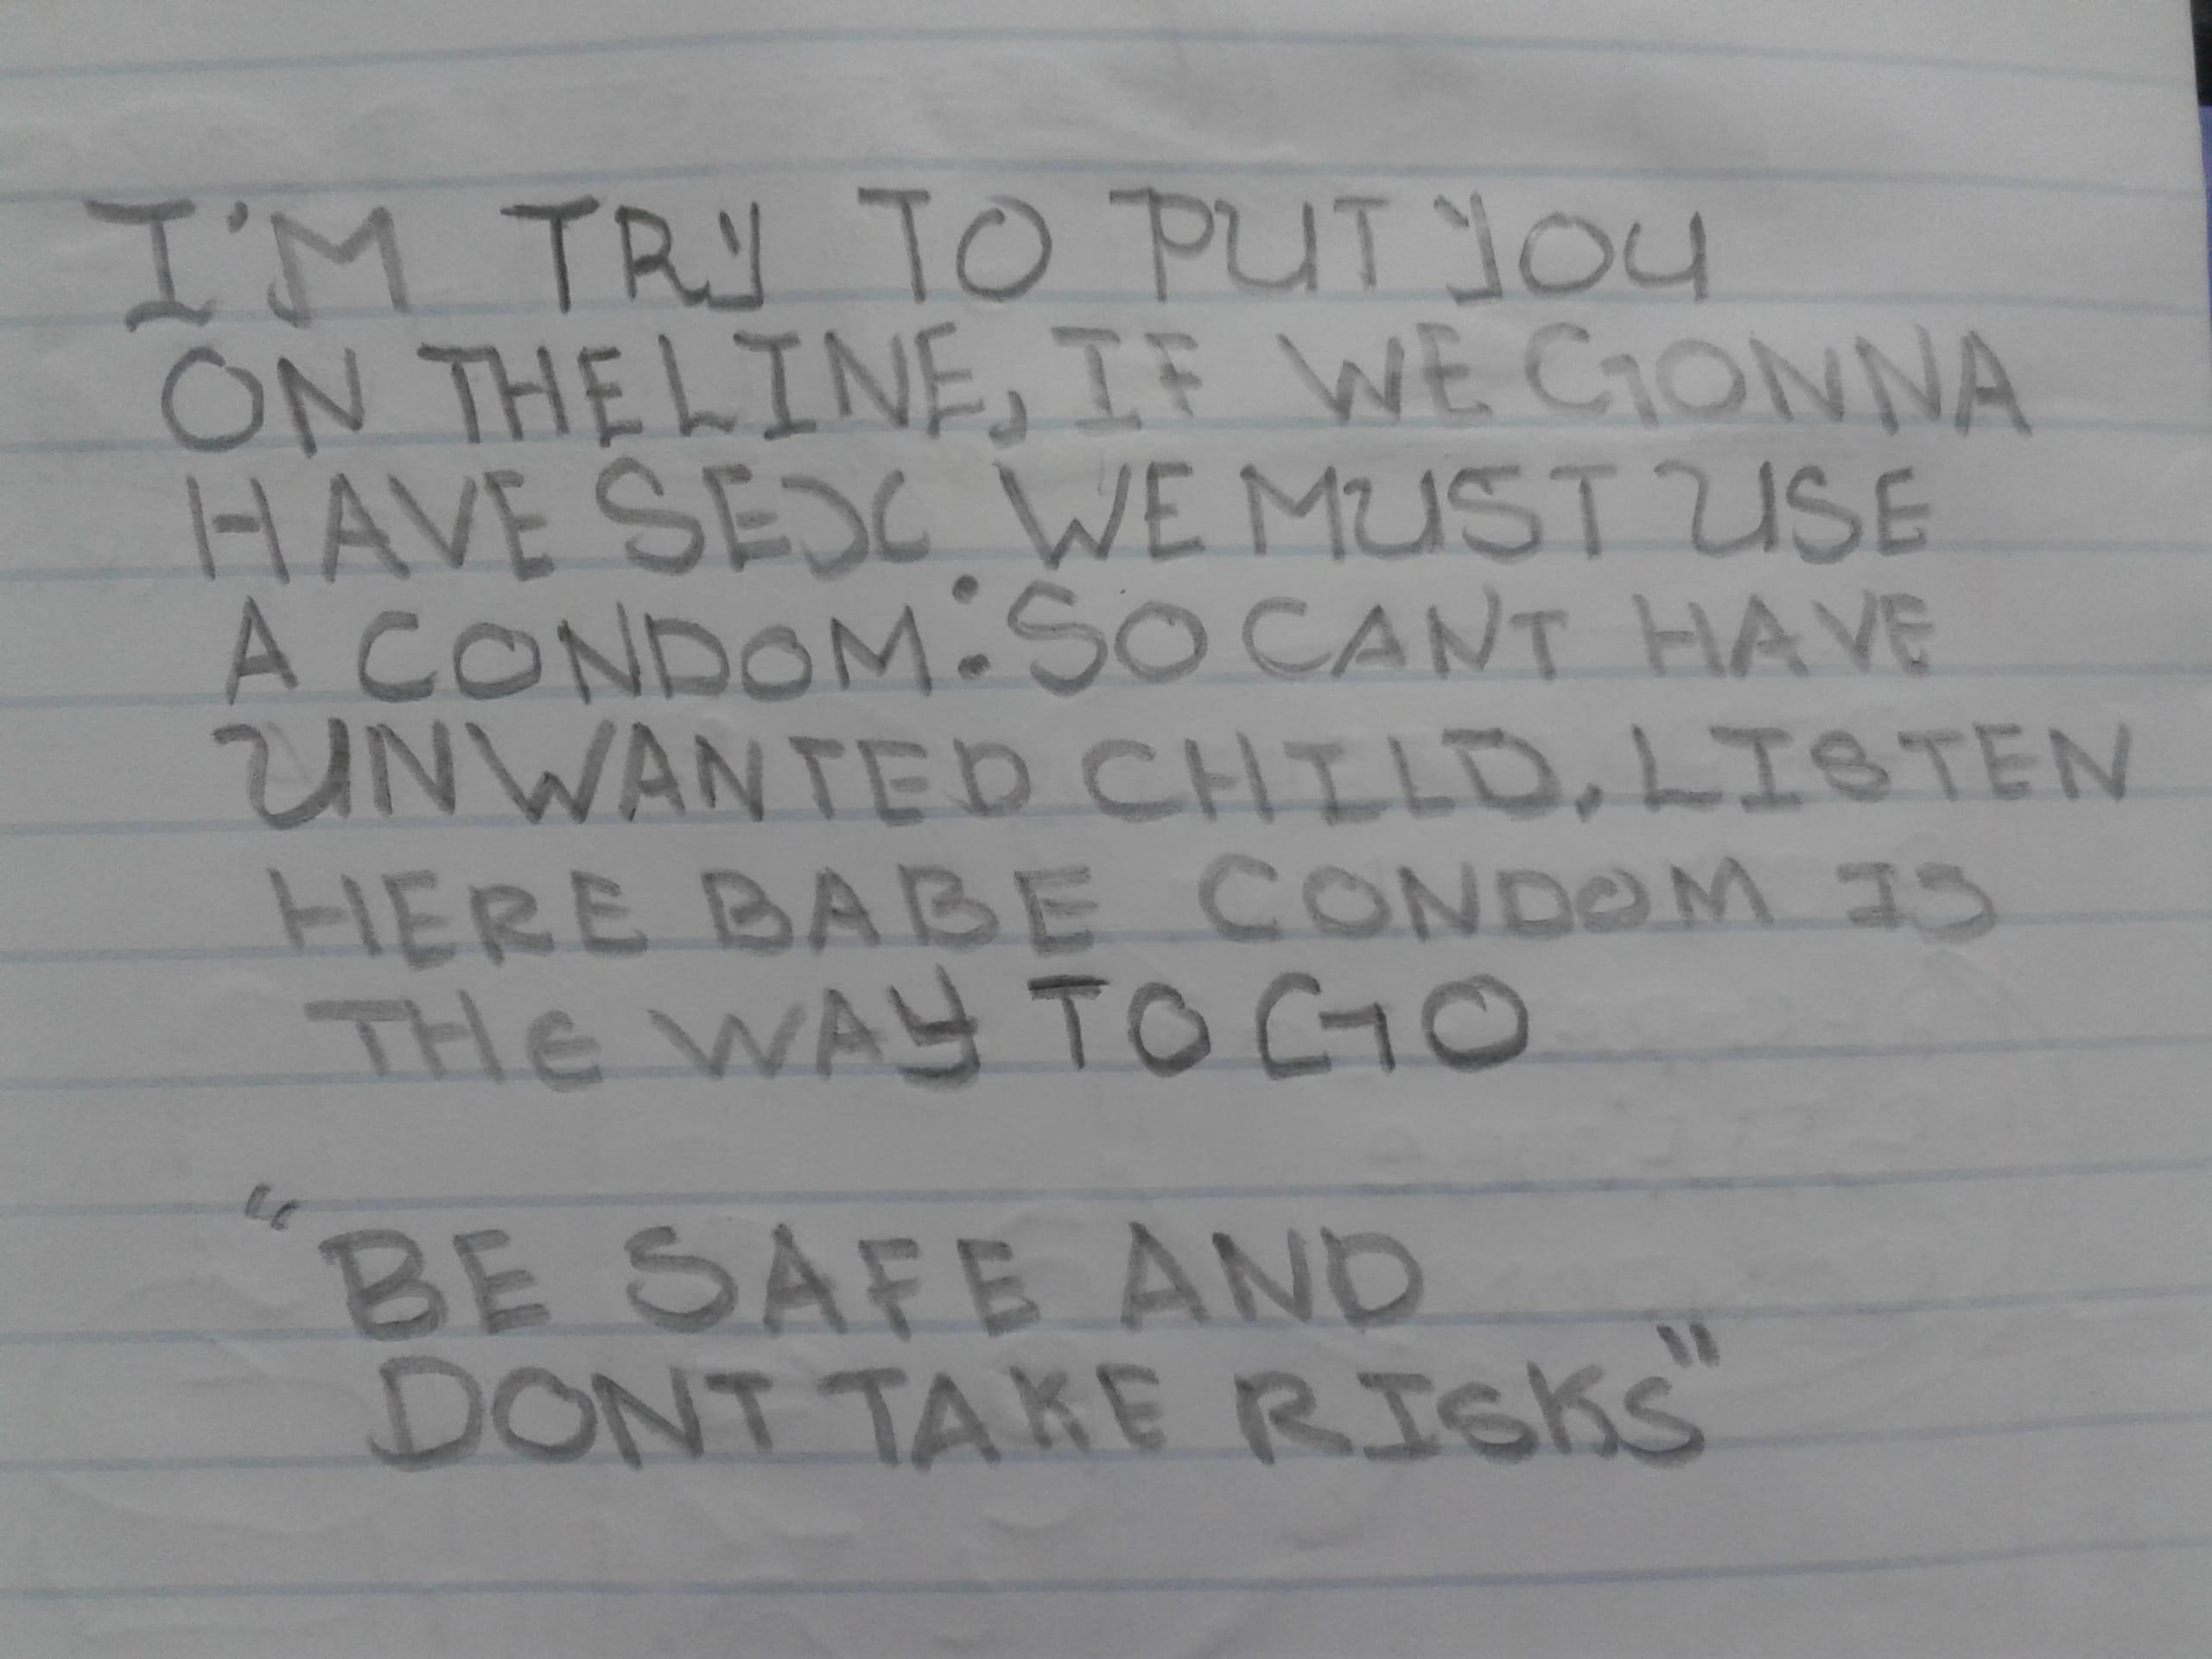 I'M TRY TO PUT YOU
ON THE LINE, IF WE GONNA
HAVE SEX WE MUST USE
A CONDOM: SO CANT HAVE
UNWANTED CHILD, LISTEN
HERE BABE CONDOM IS
THE WAY TO GO
"BE SAFE AND
DONT TAKE RISKS"